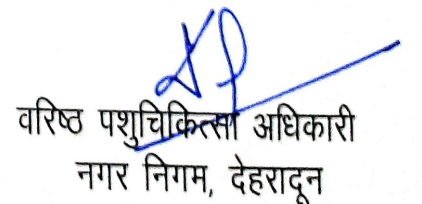 वरिष्ठ पशुचिकित्सा अधिकारी
नगर निगम, देहरादून